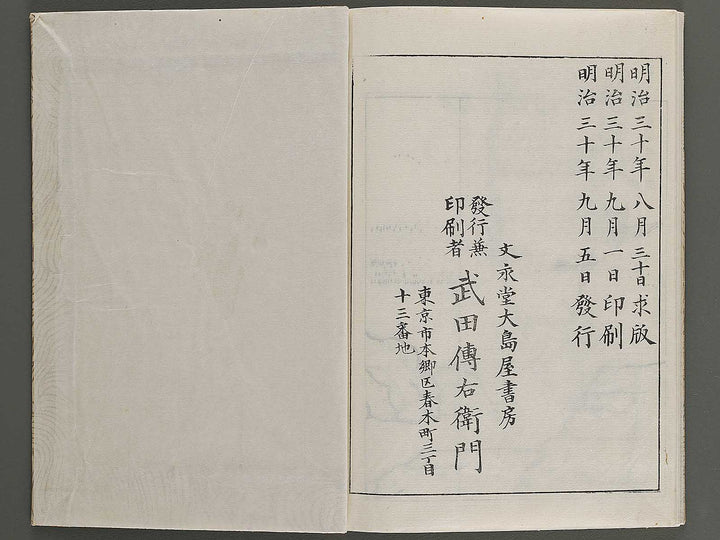 明治三十年八月三十日求版
明治三十年九月一日印刷
明治三十年九月五日發行
文永堂大島屋書房
發行兼
印刷者
武田傳右衛門
東京市本郷区春木町三丁目
十三番地